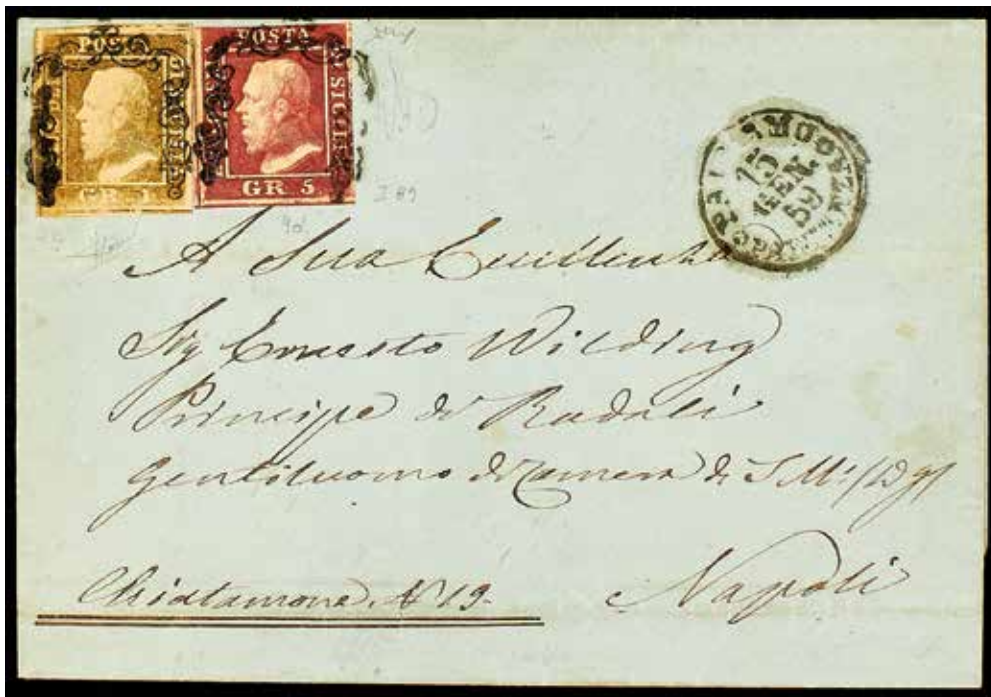 POSTA
SICILIA
GR 1
POSTA
DI SICILIA
GR 5
15
GEN.
59
A Sua Eccellenza
Sig Ernesto Wilding
Principe di Radali
Gentiluomo di Camera di S. M.
Chiatamone N 19
Napoli